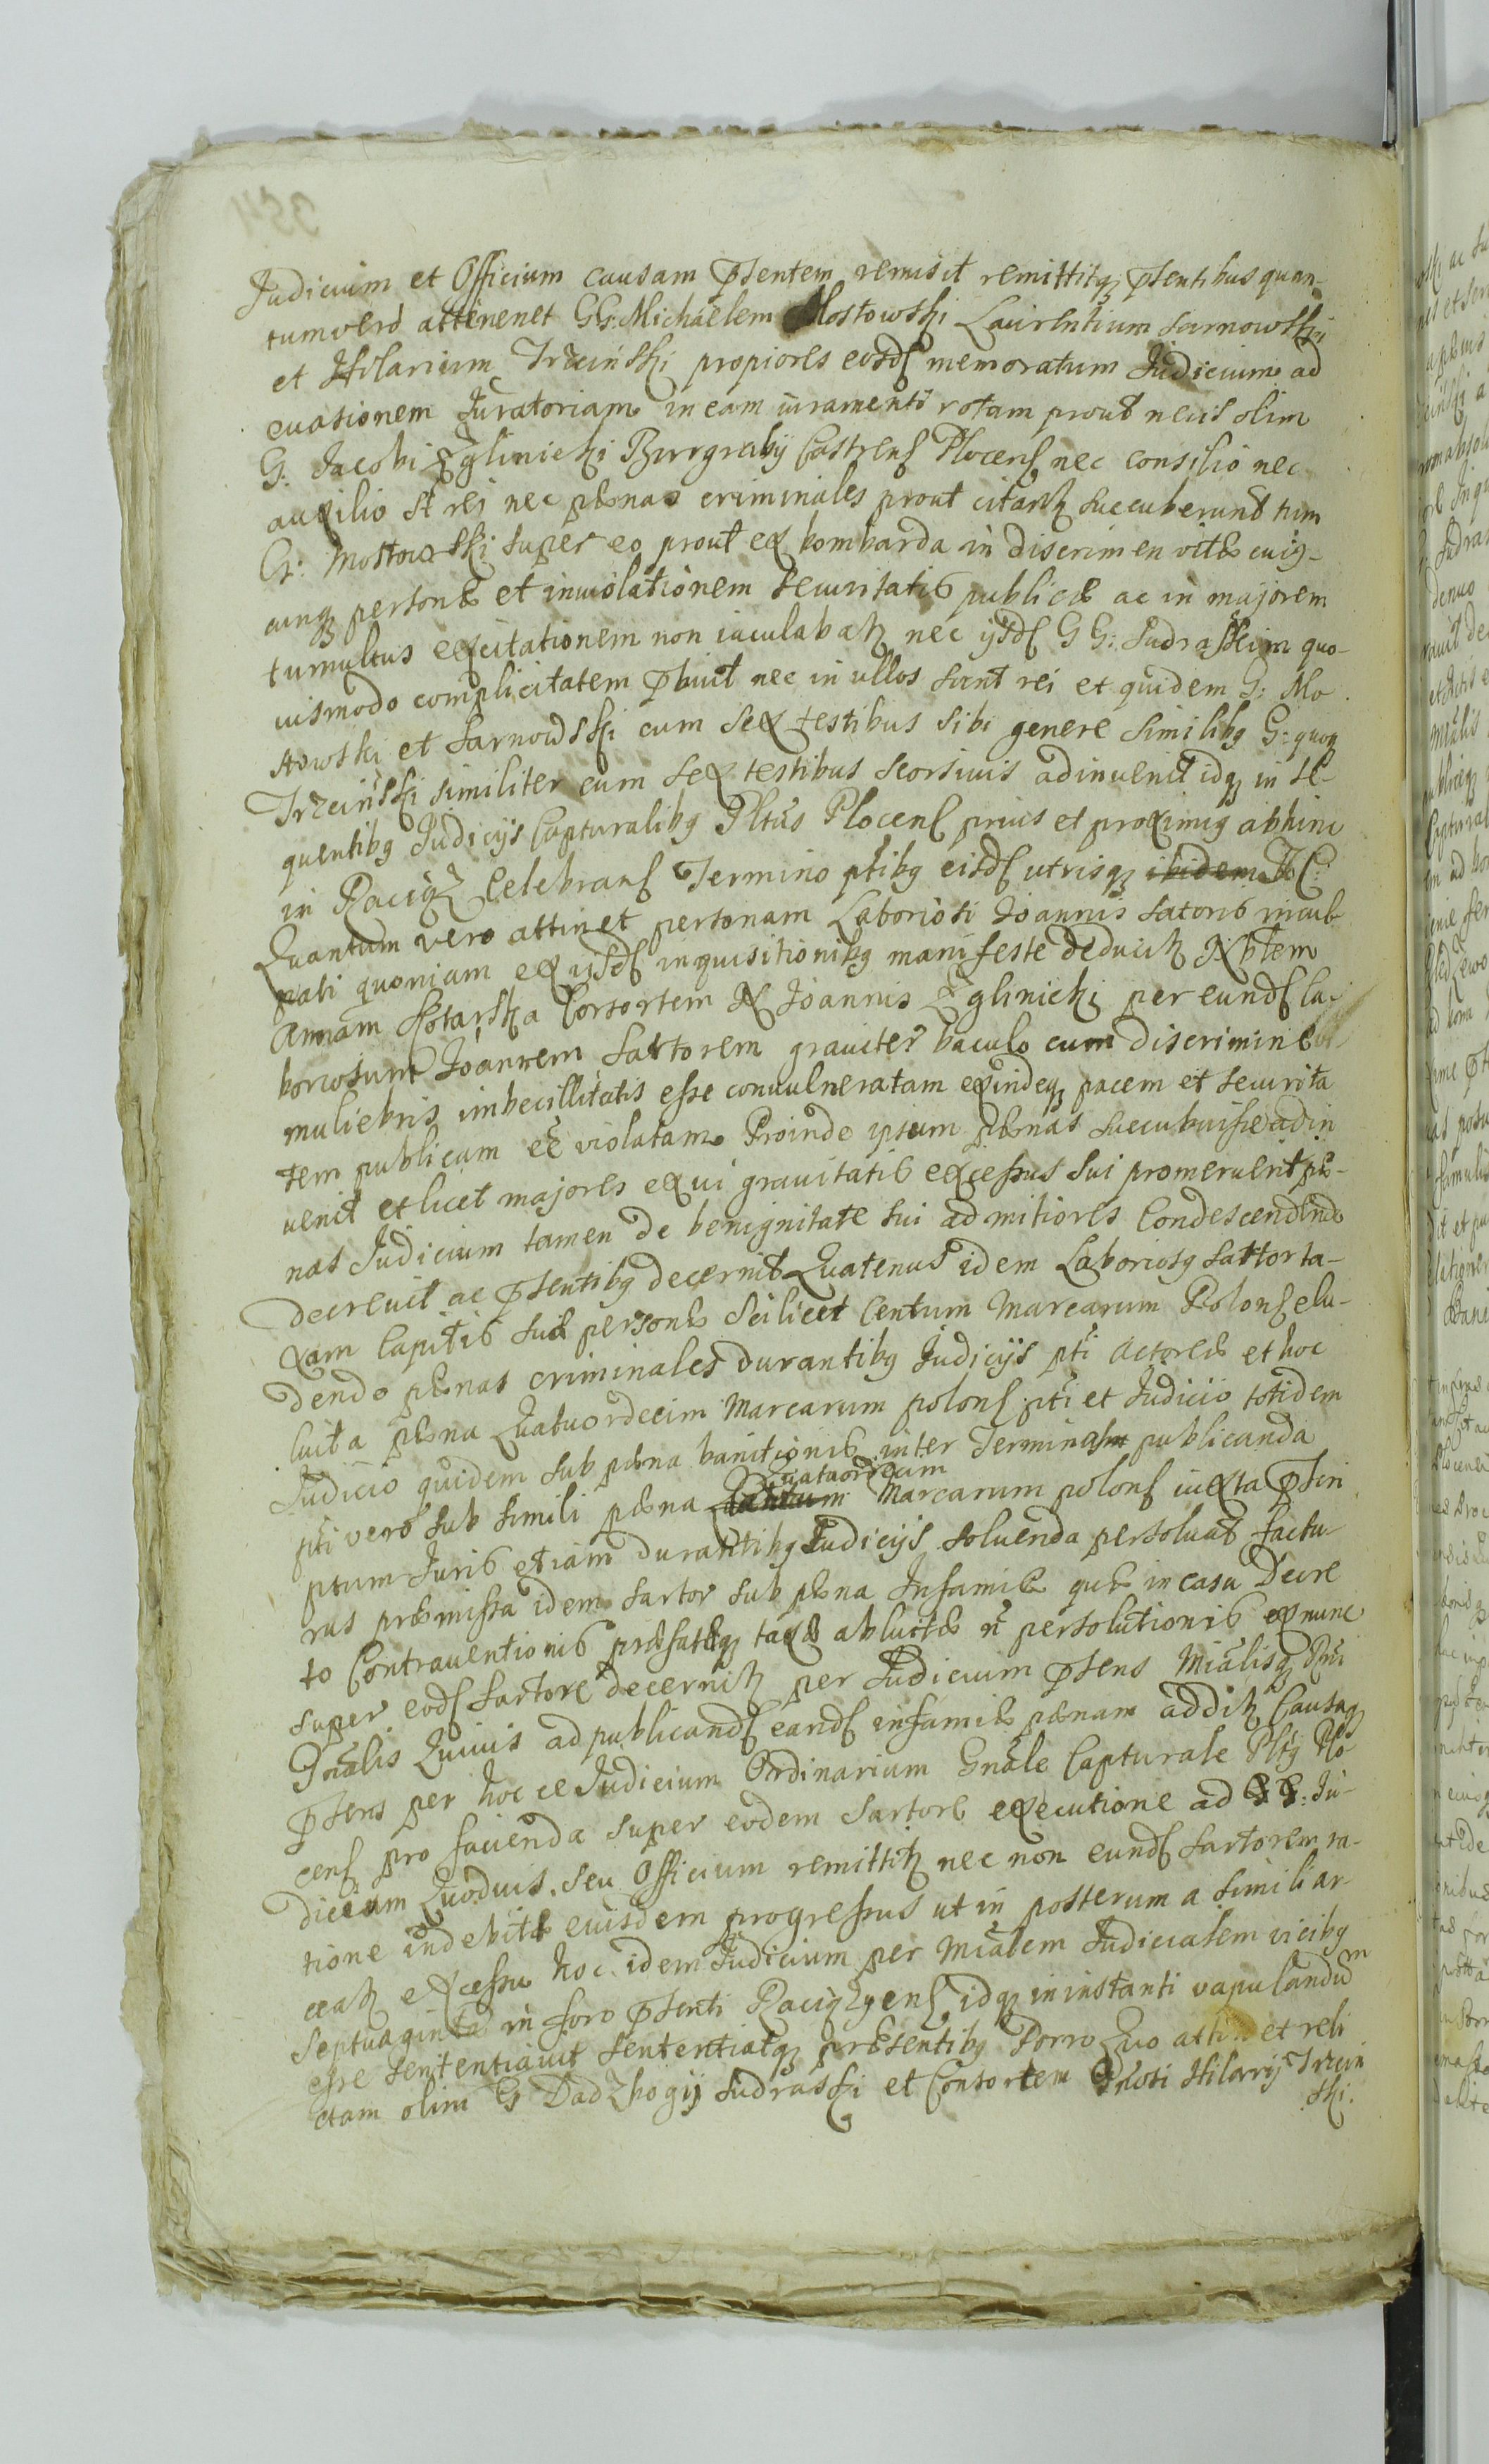 Judicium et Officium causam pñtentem remisit remittitq; pñtentibus quan-
tumvero attinenet GG: Michaëlem Mostowski Laurentium Sarnowski
et Hilarium Trzciński propiores eosd memoratum Judicium ad
evasionem Juratoriam in eam iuramenti rotam prout necis olim
G: Jacobi Zglinicki Burgrabij Castrens Plocens nec consilio nec
auxilio st rei nec pœnas criminales prout citantr succuberunt tum
G: Mostowski super eo prout ex bombarda in discrimen vitæ cuig-
cunq; personæ et inuiolationem securitatis publicæ ac in majorem
tumultus excitationem non iaculabatr nec ijsd GG: Sudraskim quo-
uismodo complicitatem pbuit nec in ullos sunt rei et quidem G: Mo
stowski et Sarnowski cum sex testibus sibi genere similibg G: quoq
Trzciński similiter cum sex testibus seorsivis adinuenit idq; in se-
quentibg Judicijs Capturalibg Pltus Plocens prius et proximig abhinc
in Raciąż Celebrans Termino ptibg eisd utrisq; ibidem
Quantum vero attinet personam Laboriosi Joannis Satoris incul-
pati quoniam ex ijsd inquisitionibg manifeste deducitr Nblem
Annam Kotarska Consortem N Joannis Zglinicki per eund la-
boriosum Joannem Sartorem graviter baculo cum discrimine
muliebris imbecillitatis esse conuulneratam exindeq; pacem et securita
tem publicam eē violatam Proinde ipsum pœnas succubuisse adin
uenit et licet majores ex ui grauitatis excessus sui promeruerit pœ-
nas Judicium tamen de benignitate sui ad mitiores Condescendendo
decreuit ac pñtentibg decernit Quatenus idem Laboriosg Sartor ta-
xam Capitis suæ personæ scilicet Centum Marcarum Polons elu-
dendo pœnas criminales durantibg Judicijs pti Actoreæ et hoc
luita pœna Quatuordecim Marcarum polons pti et Judicio totidem
Judicio quidem sub pœna banitionis inter Terminalm publicanda
pti vero sub simili pœna Centum Quatuordecim Marcarum polons iuxta pñtcri
ptum Juris etiam durantibg Judicijs soluenda persoluat factu
rus præmissa idem Sartor sub pœna Infamiæ quæ in casu Decre
to Contrauentionis præfatæq; taxæ abluitæ ñ persolutionis ex nunc
super eod Sartore decernitr per Judicium pñtens Mialisq; Rni
Gnalis Quiuis ad publicand eand infamiæ pœnam additr Causaq;
pñtens per hocce Judicium Ordinarium Gnale Capturale Pltg Plo
cens pro facienda super eodem Sartore executione ad Ju-
dicium Quoduis seu Officium remittitr nec non eund Sartorem ra-
tione indebitæ eiusdem progressus ut in posterum a simili ar
ceatr excessu hoc idem Judicium per Mialem Judicialem vicibg
septuaginta in foro pñtenti Raciążens idq; in instanti vapulandum
esse sententiauit sententiatq; præsentibg Porro Quo attinet reli
ctam olim G Dadzbogij Sudraski et Consortem Gnosi Hilarij Trzciń
ski.